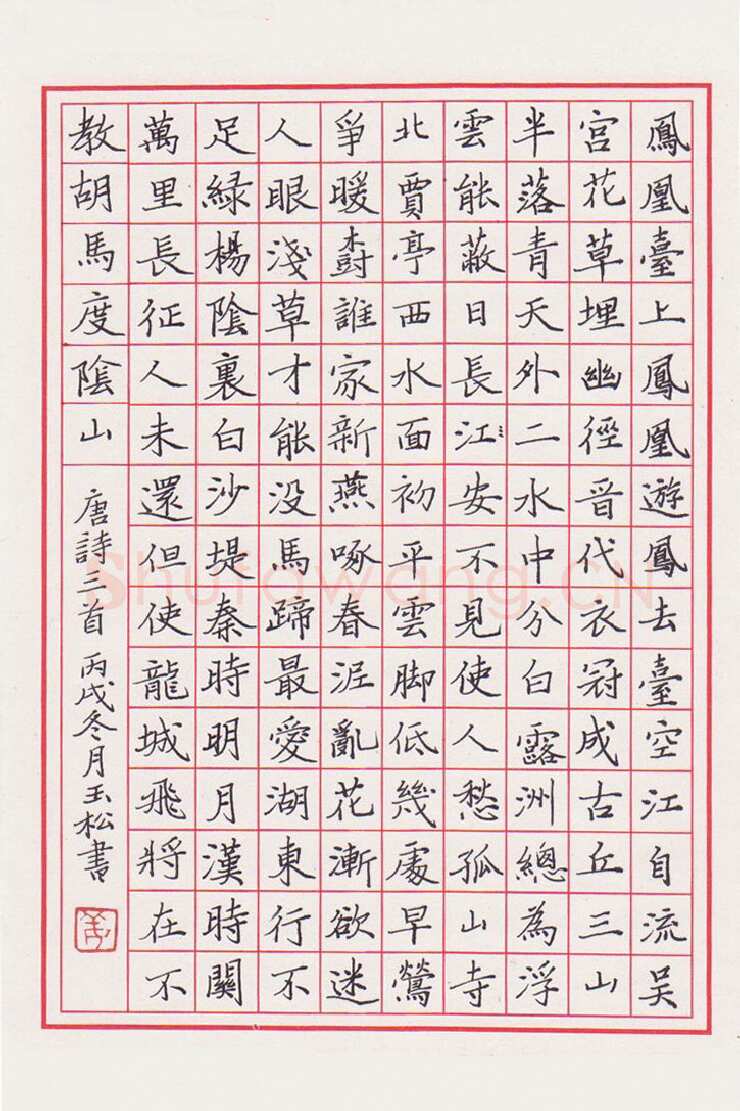 鳳凰臺上鳳凰遊鳳去臺空江自流吳
宮花草埋幽徑晉代衣冠成古丘三山
半落青天外二水中分白露洲總為浮
雲能蔽日長江安不見使人愁孤山寺
北賈亭西水面初平雲脚低幾處早鶯
爭暖樹誰家新燕啄春泥亂花漸欲迷
人眼淺草才能没馬蹄最愛湖東行不
足綠楊陰裏白沙堤秦時明月漢時關
萬里長征人未還但使龍城飛將在不
教胡馬度陰山
唐詩三首 丙戌冬月玉松書
Shufawang.CN